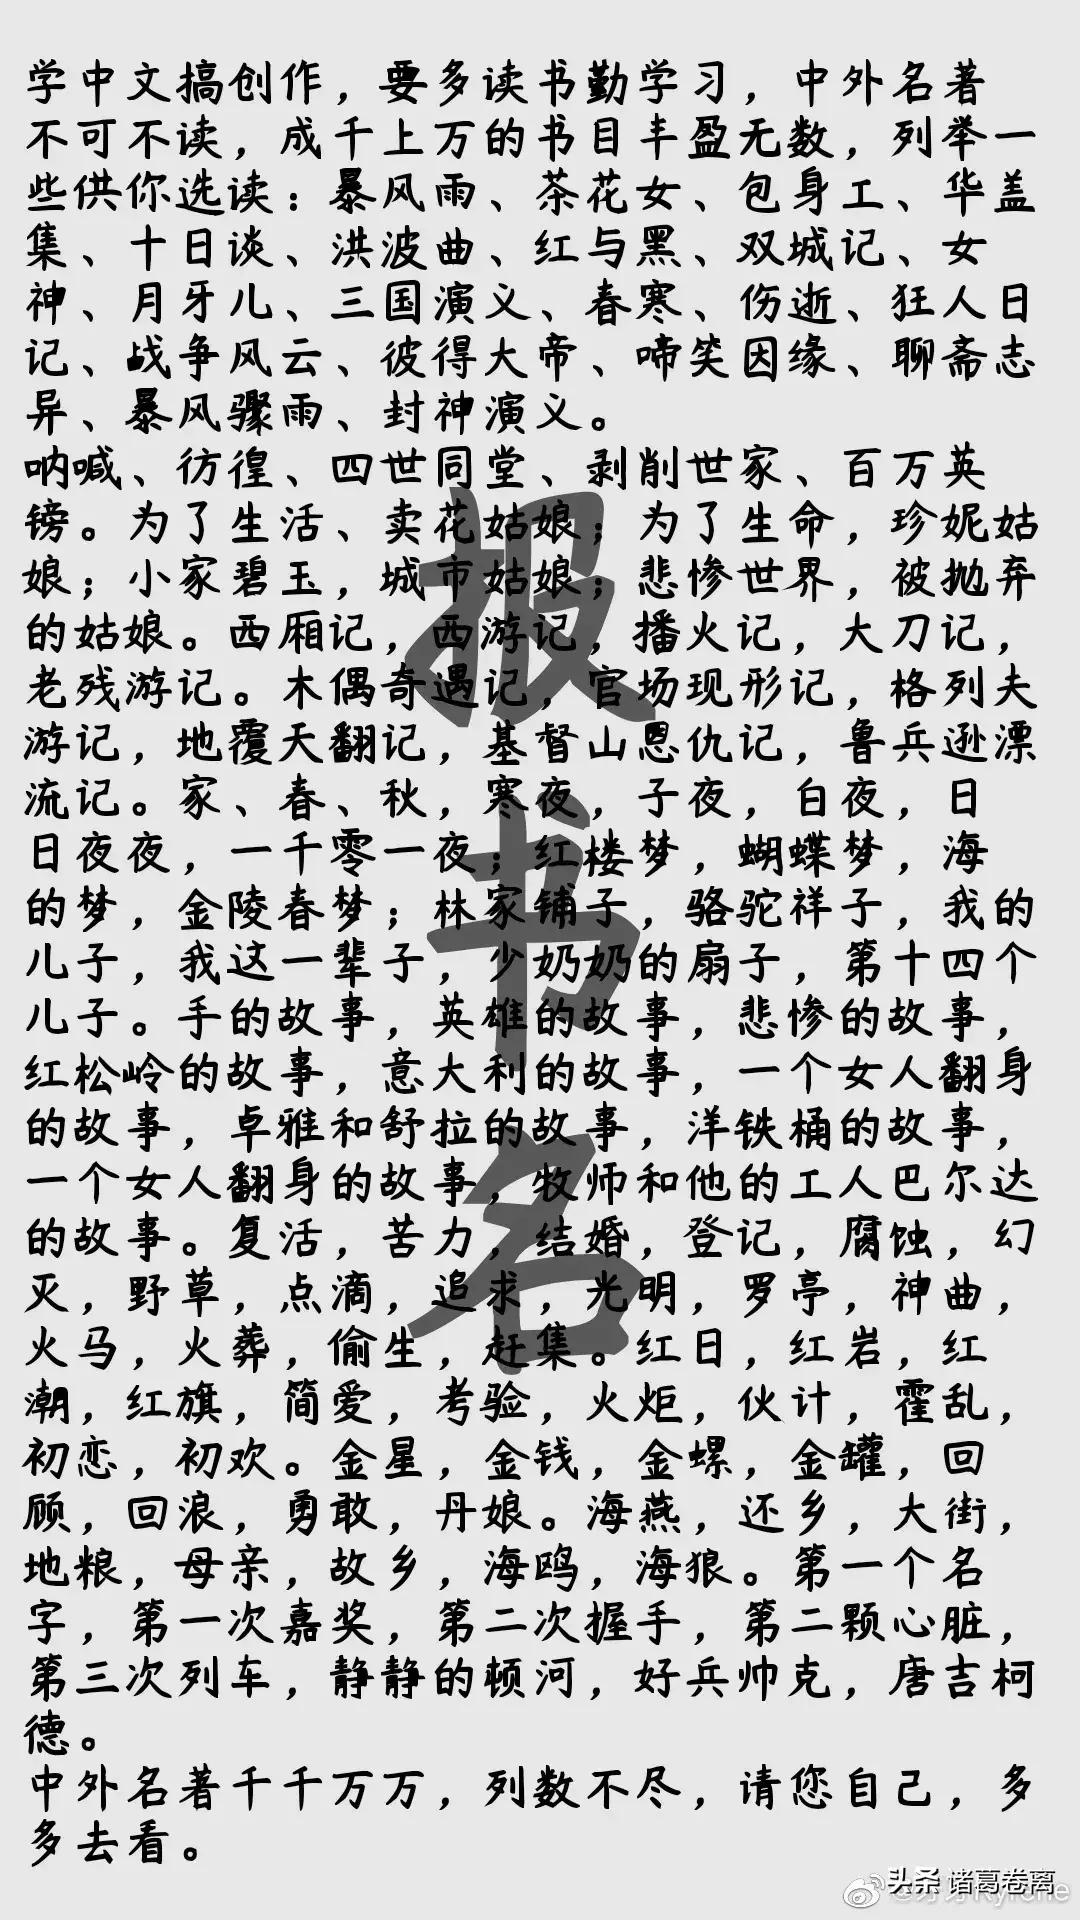 学中文搞创作，要多读书勤学习，中外名著
不可不读，成千上万的书目丰盈无数，列举一
些供你选读：暴风雨、茶花女、包身工、华盖
集、十日谈、洪波曲、红与黑、双城记、女
神、月牙儿、三国演义、春寒、伤逝、狂人日
记、战争风云、彼得大帝、啼笑因缘、聊斋志
异、暴风骤雨、封神演义。
呐喊、彷徨、四世同堂、剥削世家、百万英
镑。为了生活、卖花姑娘；为了生命，珍妮姑
娘；小家碧玉，城市姑娘；悲惨世界，被抛弃
的姑娘。西厢记，西游记，播火记，大刀记，
老残游记。木偶奇遇记，官场现形记，格列夫
游记，地覆天翻记，基督山恩仇记，鲁兵逊漂
流记。家、春、秋，寒夜，子夜，白夜，日
日夜夜，一千零一夜；红楼梦，蝴蝶梦，海
的梦，金陵春梦；林家铺子，骆驼祥子，我的
儿子，我这一辈子，少奶奶的扇子，第十四个
儿子。手的故事，英雄的故事，悲惨的故事，
红松岭的故事，意大利的故事，一个女人翻身
的故事，卓雅和舒拉的故事，洋铁桶的故事，
一个女人翻身的故事，牧师和他的工人巴尔达
的故事。复活，苦力，结婚，登记，腐蚀，幻
灭，野草，点滴，追求，光明，罗亭，神曲，
火马，火葬，偷生，赶集。红日，红岩，红
潮，红旗，简爱，考验，火炬，伙计，霍乱，
初恋，初欢。金星，金钱，金螺，金罐，回
顾，回浪，勇敢，丹娘。海燕，还乡，大街，
地粮，母亲，故乡，海鸥，海狼。第一个名
字，第一次嘉奖，第二次握手，第二颗心脏，
第三次列车，静静的顿河，好兵帅克，唐吉柯
德。
中外名著千千万万，列数不尽，请您自己，多
多去看。
报
书
名
头条 诸葛卷离